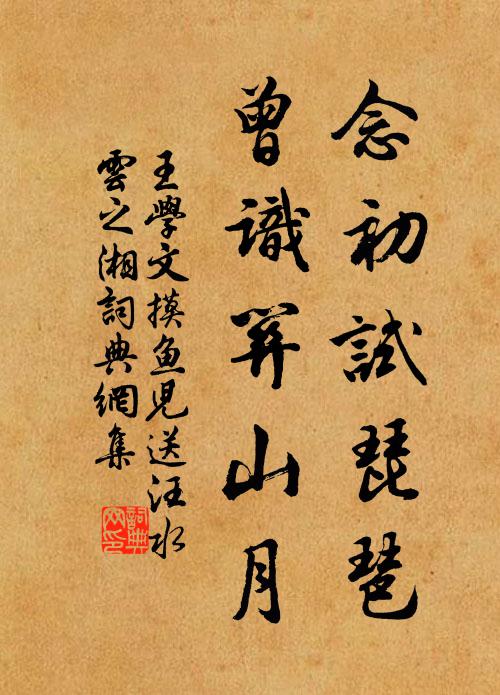 念初試琵琶
曾識關山月
王學文摸魚兒送汪水
雲之湘詞典網集
詞典
网印